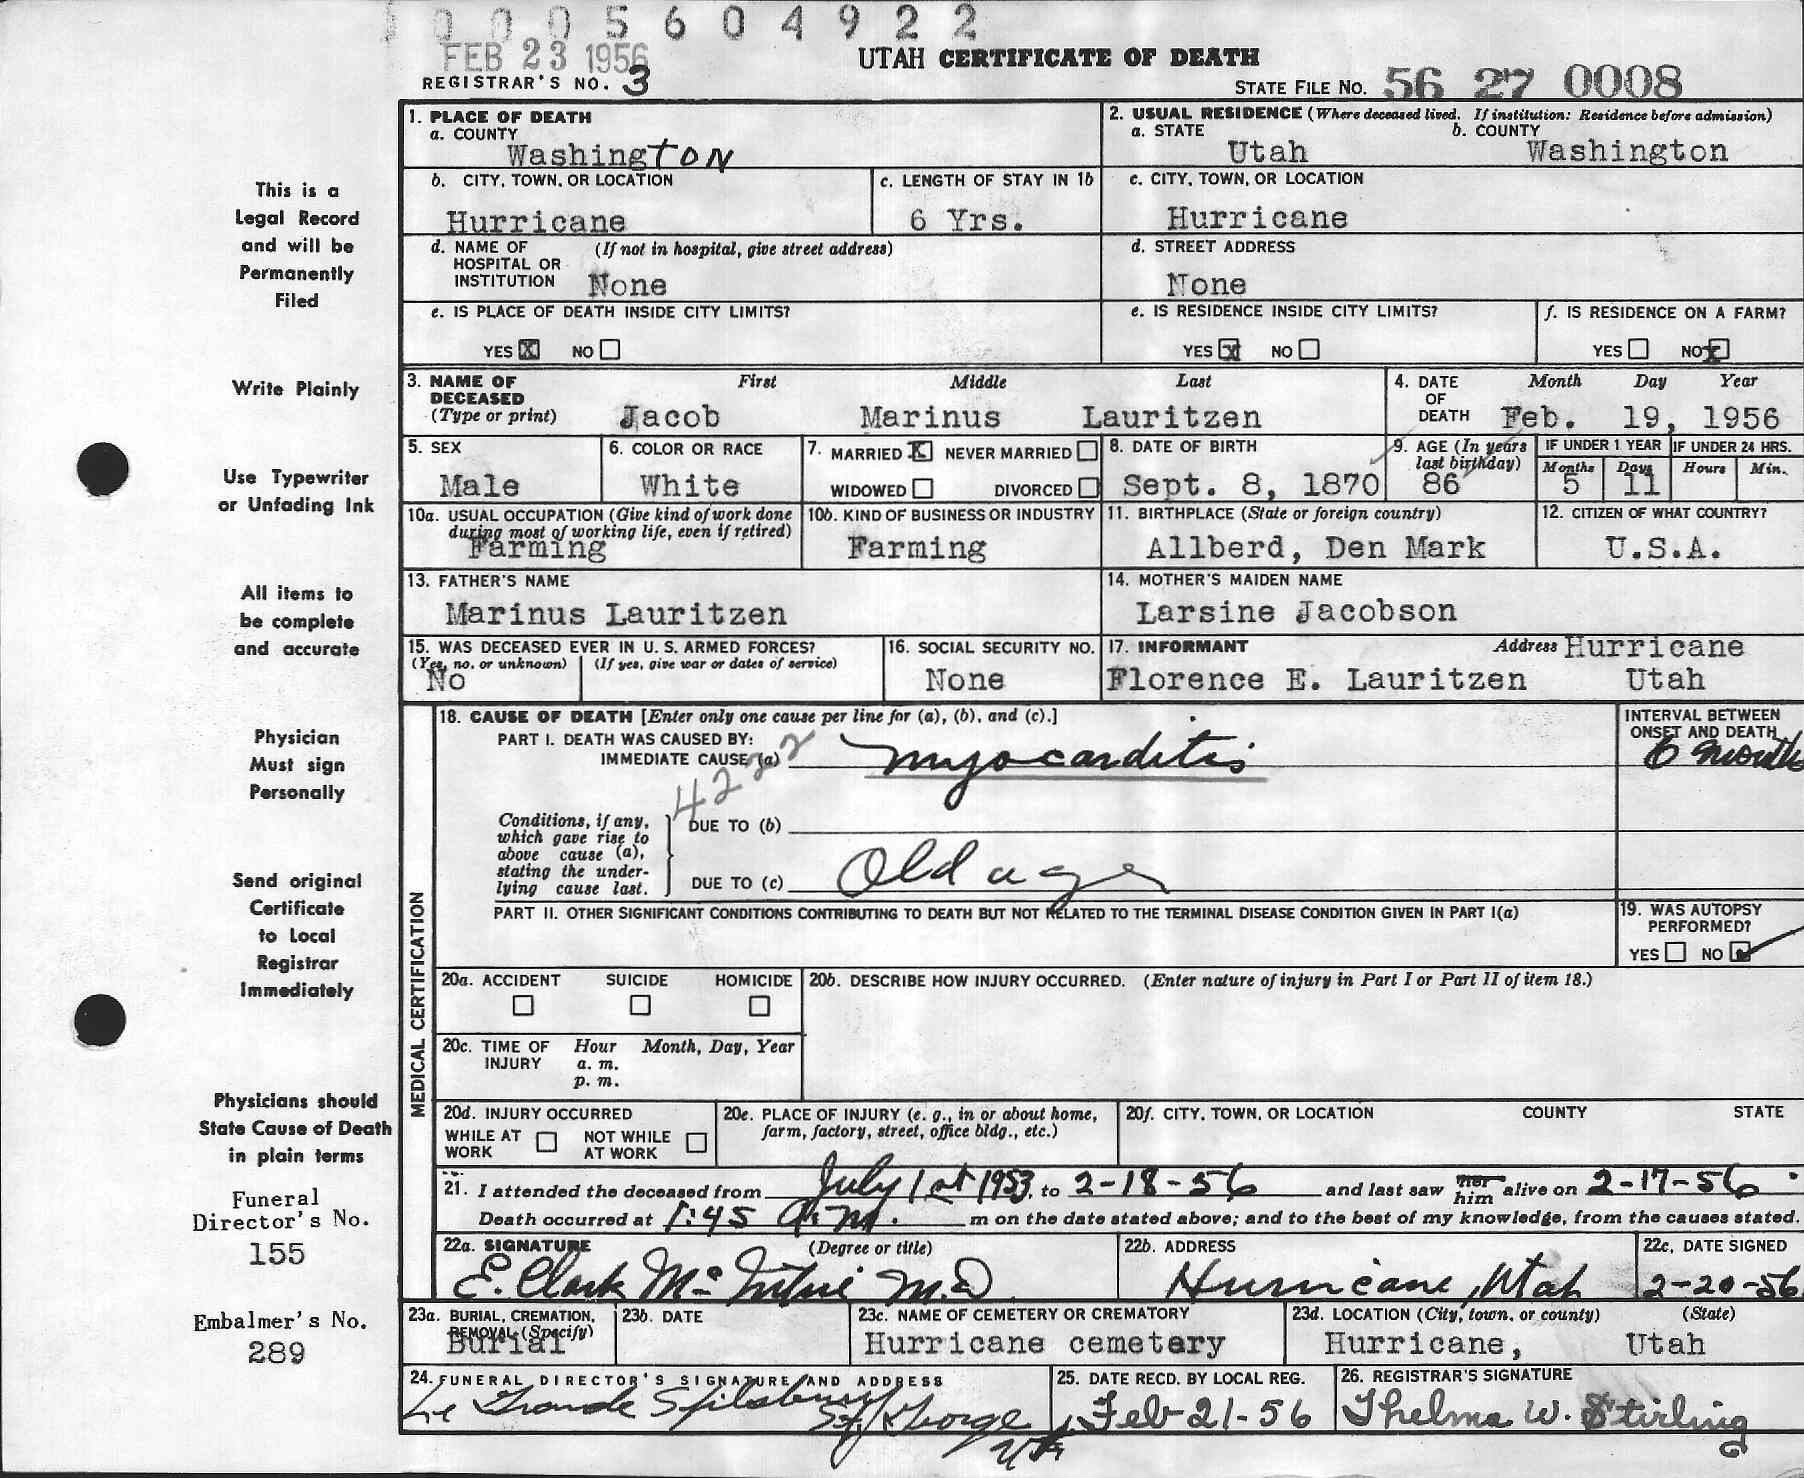 0005604922
FEB 23 1956
UTAH CERTIFICATE OF DEATH
REGISTRAR'S NO. 3
STATE FILE NO. 56 27 0008
This is a
Legal Record
and will be
Permanently
Filed
Write Plainly
Use Typewriter
or Unfading Ink
All items to
be complete
and accurate
Physician
Must sign
Personally
Send original
Certificate
to Local
Registrar
Immediately
Physicians should
State Cause of Death
in plain terms
Funeral
Director's No.
155
Embalmer's No.
289
1. PLACE OF DEATH
a. COUNTY
Washington
2. USUAL RESIDENCE (Where deceased lived. If institution: Residence before admission)
a. STATE b. COUNTY
Utah Washington
b. CITY, TOWN, OR LOCATION
Hurricane
c. LENGTH OF STAY IN 1b
6 Yrs.
c. CITY, TOWN, OR LOCATION
Hurricane
d. NAME OF (If not in hospital, give street address)
HOSPITAL OR
INSTITUTION None
d. STREET ADDRESS
None
e. IS PLACE OF DEATH INSIDE CITY LIMITS?
YES X NO
e. IS RESIDENCE INSIDE CITY LIMITS?
YES X NO
f. IS RESIDENCE ON A FARM?
YES NO X
3. NAME OF DECEASED
(Type or print)
First Middle Last
Jacob Marinus Lauritzen
4. DATE OF DEATH
Month Day Year
Feb. 19, 1956
5. SEX
Male
6. COLOR OR RACE
White
7. MARRIED X NEVER MARRIED
WIDOWED DIVORCED
8. DATE OF BIRTH
Sept. 8, 1870
9. AGE (In years
last birthday)
86
IF UNDER 1 YEAR
Months Days
5 11
IF UNDER 24 HRS.
Hours Min.
10a. USUAL OCCUPATION (Give kind of work done
during most of working life, even if retired)
Farming
10b. KIND OF BUSINESS OR INDUSTRY
Farming
11. BIRTHPLACE (State or foreign country)
Allberd, Den Mark
12. CITIZEN OF WHAT COUNTRY?
U.S.A.
13. FATHER'S NAME
Marinus Lauritzen
14. MOTHER'S MAIDEN NAME
Larsine Jacobson
15. WAS DECEASED EVER IN U. S. ARMED FORCES?
(Yes, no. or unknown) (If yes, give war or dates of service)
No
16. SOCIAL SECURITY NO.
None
17. INFORMANT Address Hurricane
Florence E. Lauritzen Utah
MEDICAL CERTIFICATION
18. CAUSE OF DEATH [Enter only one cause per line for (a), (b), and (c).]
PART I. DEATH WAS CAUSED BY:
IMMEDIATE CAUSE (a) myocarditis
4222
INTERVAL BETWEEN
ONSET AND DEATH
6 months
Conditions, if any,
which gave rise to
above cause (a),
stating the under-
lying cause last.
DUE TO (b)
DUE TO (c) Old age
PART II. OTHER SIGNIFICANT CONDITIONS CONTRIBUTING TO DEATH BUT NOT RELATED TO THE TERMINAL DISEASE CONDITION GIVEN IN PART I(a)
19. WAS AUTOPSY
PERFORMED?
YES NO
20a. ACCIDENT SUICIDE HOMICIDE
20b. DESCRIBE HOW INJURY OCCURRED. (Enter nature of injury in Part I or Part II of item 18.)
20c. TIME OF INJURY
Hour Month, Day, Year
a. m.
p. m.
20d. INJURY OCCURRED
WHILE AT WORK
NOT WHILE AT WORK
20e. PLACE OF INJURY (e. g., in or about home,
farm, factory, street, office bldg., etc.)
20f. CITY, TOWN, OR LOCATION COUNTY STATE
21. I attended the deceased from July 1st 1953, to 2-18-56 and last saw her him alive on 2-17-56.
Death occurred at 1:45 a.m. m on the date stated above; and to the best of my knowledge, from the causes stated.
22a. SIGNATURE (Degree or title)
E. Clark McIntire M.D
22b. ADDRESS
Hurricane, Utah
22c. DATE SIGNED
2-20-56
23a. BURIAL, CREMATION,
REMOVAL (Specify)
Burial
23b. DATE
23c. NAME OF CEMETERY OR CREMATORY
Hurricane cemetery
23d. LOCATION (City, town, or county) (State)
Hurricane, Utah
24. FUNERAL DIRECTOR'S SIGNATURE AND ADDRESS
Le Grande Spilsbury
St. George
Ut
25. DATE RECD. BY LOCAL REG.
Feb-21-56
26. REGISTRAR'S SIGNATURE
Thelma W. Stirling